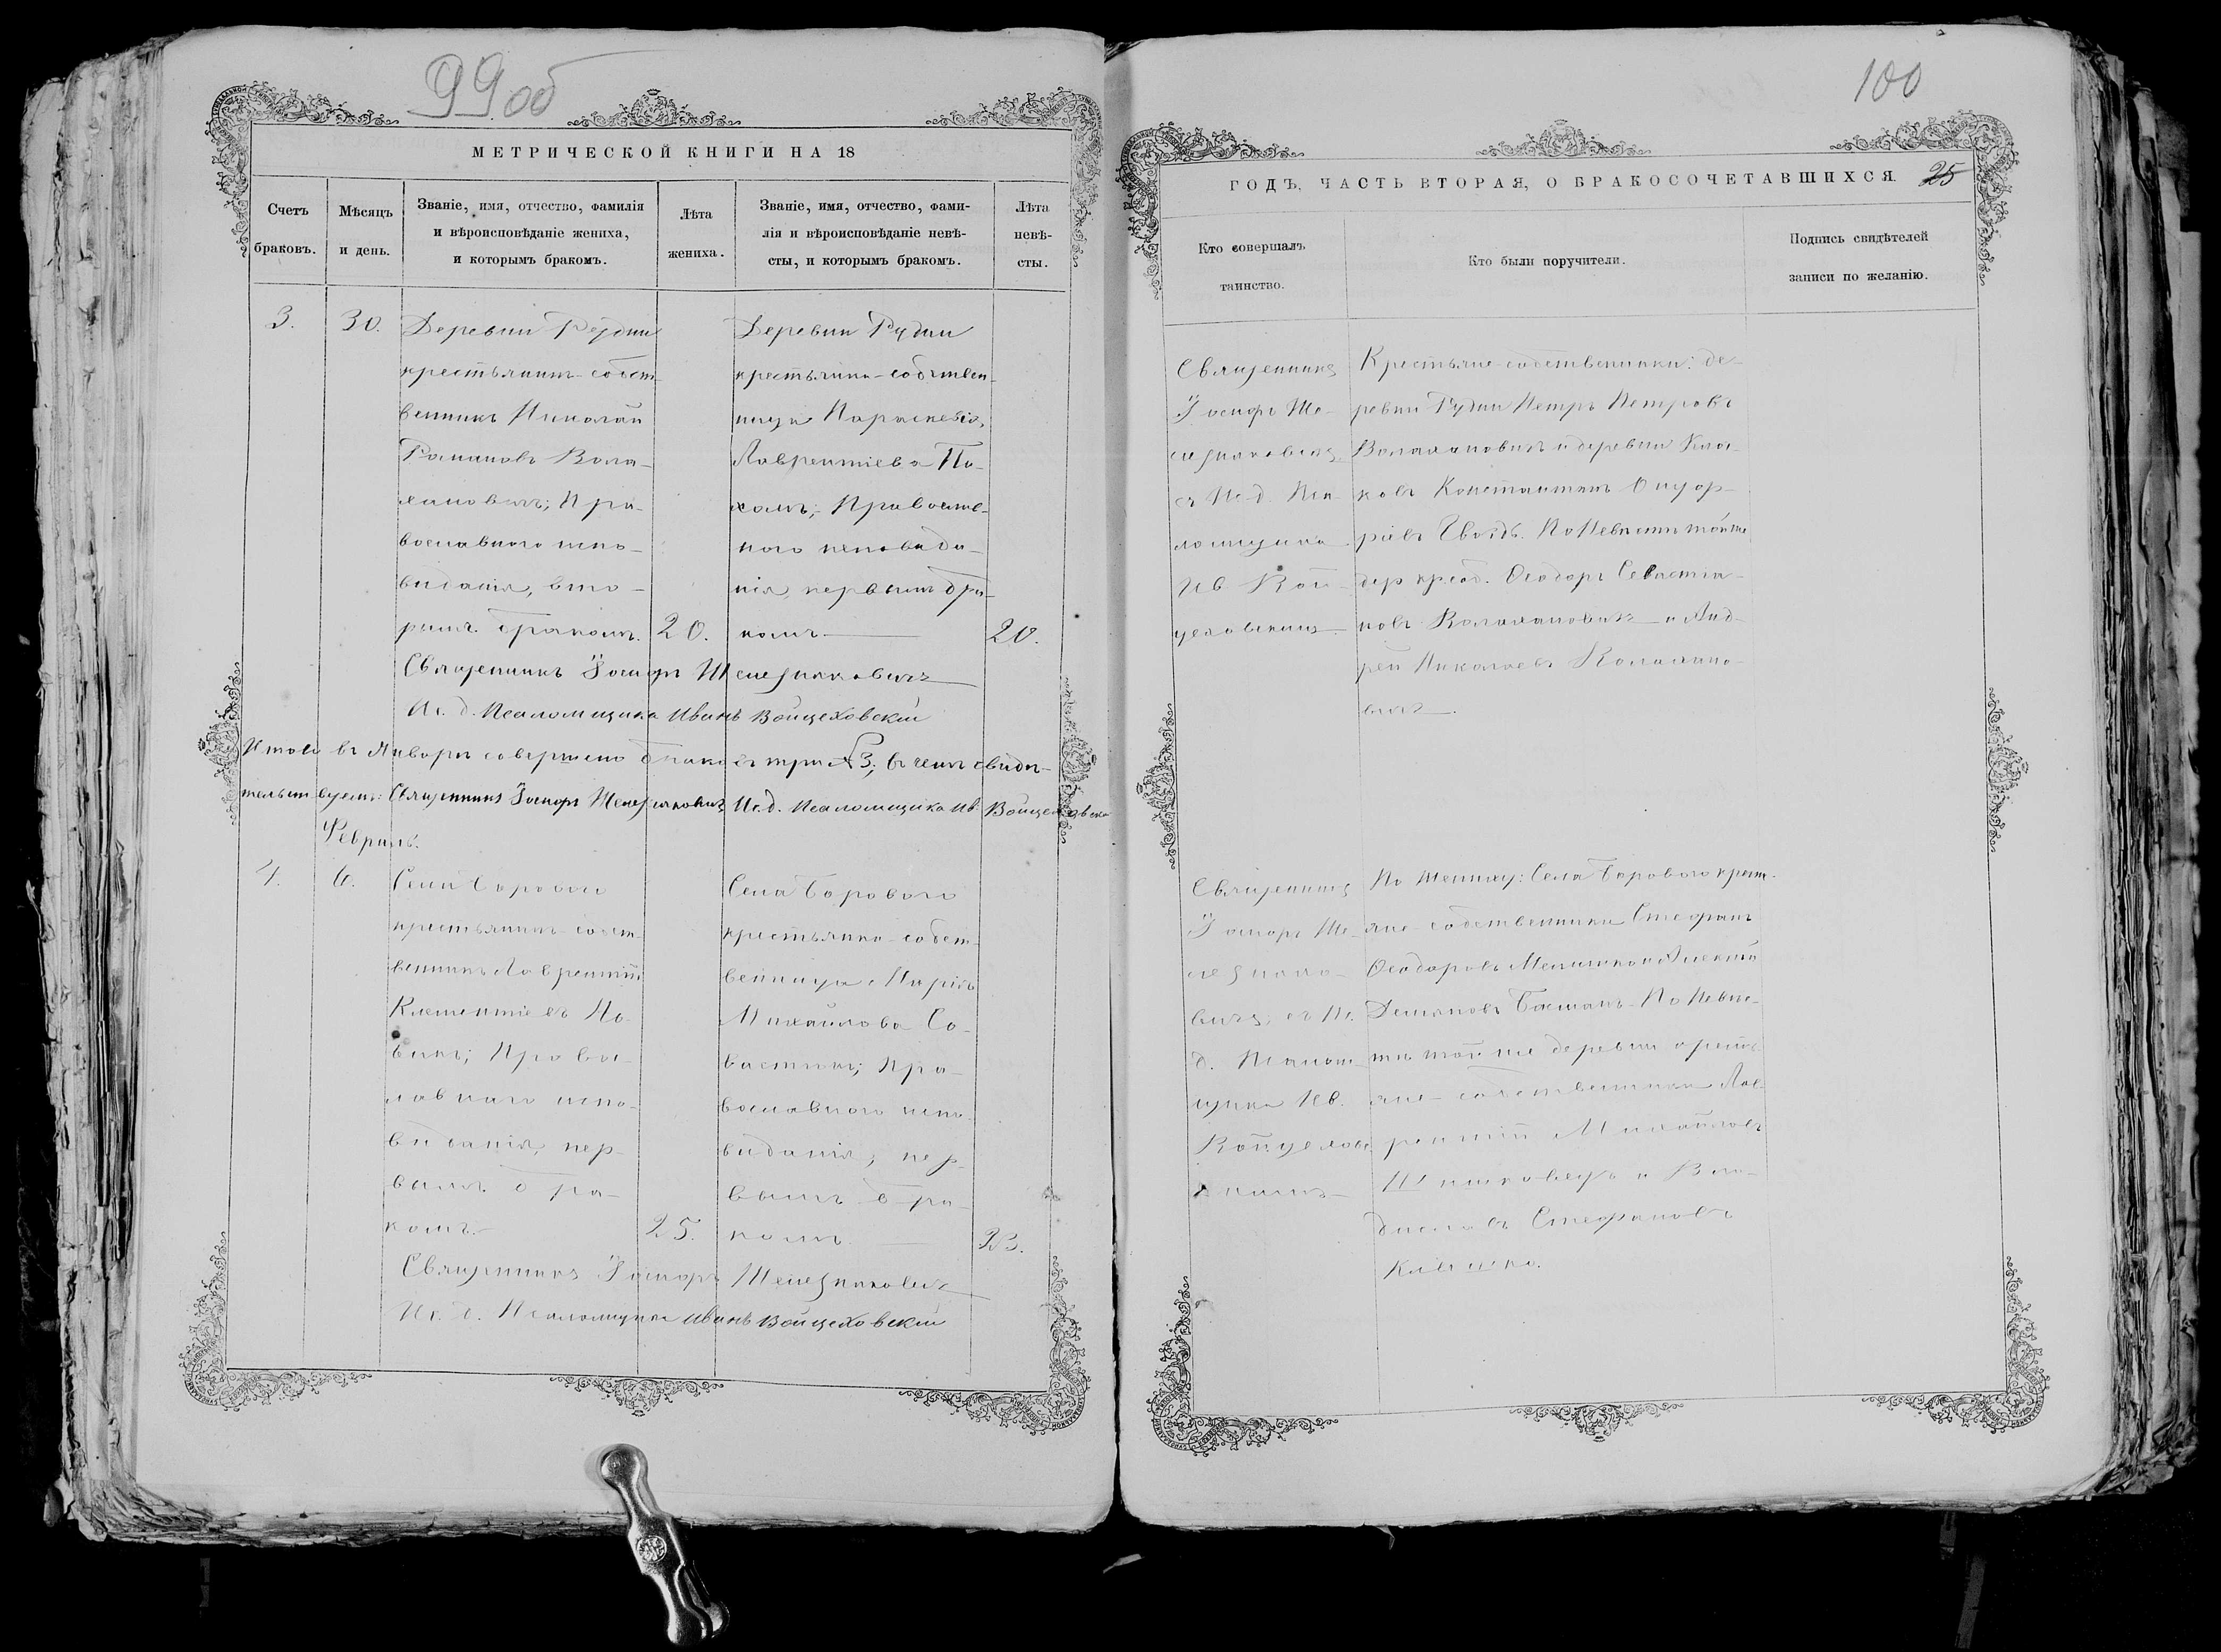 99 об
МЕТРИЧЕСКОЙ КНИГИ НА 18
Счетъ браковъ.
Мѣсяцъ и день.
Званіе, имя, отчество, фамилія
и вѣроисповѣданіе жениха,
и которымъ бракомъ.
Лѣта жениха.
Званіе, имя, отчество, фами-
лія и вѣроисповѣданіе невѣ-
сты, и которымъ бракомъ.
Лѣта невѣ-
сты.
3.
30.
Деревни Рудни
крестьянинъ-собст-
венникъ Николай
Романовъ Вола-
хановичъ; Пра-
вославнаго испо-
вѣданія, вто-
рымъ бракомъ.
20.
Деревни Рудни
крестьянка-собствен-
ница Параскевія
Лаврентіева По-
холъ; Православ-
наго исповѣда-
нія, первымъ бра-
комъ
20.
Священникъ Іосифъ
Ис. д. Псаломщика Иванъ Войцеховскій
Итого въ Январѣ совершено браковъ три №3, въ чемъ свидѣ-
тельствуемъ: Священникъ Іосифъ Ис. д. Псаломщика Ив. Войцеховскій
Февраль.
4.
6.
Села Борового
крестьянинъ-собст-
венникъ Лаврентій
Климентіевъ Но-
викъ; Правос-
лавнаго испо-
вѣданія, пер-
вымъ бра-
комъ
25.
Села Борового
крестьянка-собст-
венница Марія
Михайлова Со-
Пра-
вославнаго испо-
вѣданія, пер-
вымъ бра-
комъ.
23.
Священникъ Іосифъ
Ис. д. Псаломщика Иванъ Войцеховскій
100
ГОДЪ, ЧАСТЬ ВТОРАЯ, О БРАКОСОЧЕТАВШИХСЯ.
25
Кто совершалъ
таинство.
Кто были поручители.
Подпись свидѣтелей
записи по желанію.
Священникъ
Іосифъ
съ Ис. д. Пса-
ломщика
Ив. Вой-
цеховскимъ
Крестьяне-собственники: де-
ревни Рудни Петръ Петровъ
Волахановичъ и деревни
Константинъ Онуф-
ріевъ Гвоздь. По Невѣстѣ той же
дер. кр. соб. Ѳеодоръ Севастья-
новъ Волахановичъ и Анд-
рей Николаевъ Волахано-
вичъ.
Священникъ
Іосифъ
съ Ис.
д. Псалом-
щика Ив.
Войцехов-
скимъ
По Жениху: Села Борового кресть-
яне-собственники Стефанъ
Ѳеодоровъ и Алексій
Демяновъ По Невѣс-
тѣ той же деревни кресть-
яне-собственники Лав-
рентій Михайловъ
и Вла-
диславъ Стефановъ